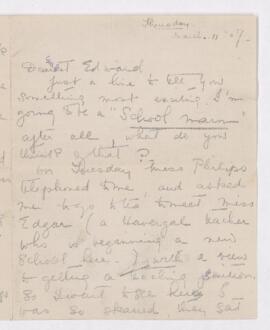 Thursday
March. 11 '09.
Dearest Edward
Just a line to tell you
something most exciting. I'm
going to be a "School marm"
after all, what do you
think of that?
on Tuesday Miss Philips
telephoned to me and asked
me to go to tea to meet Miss
Edgar (a Havergal teacher
who is beginning a new
School here.) with a view
to getting a teaching position.
So I went to tea &
was so scared they said